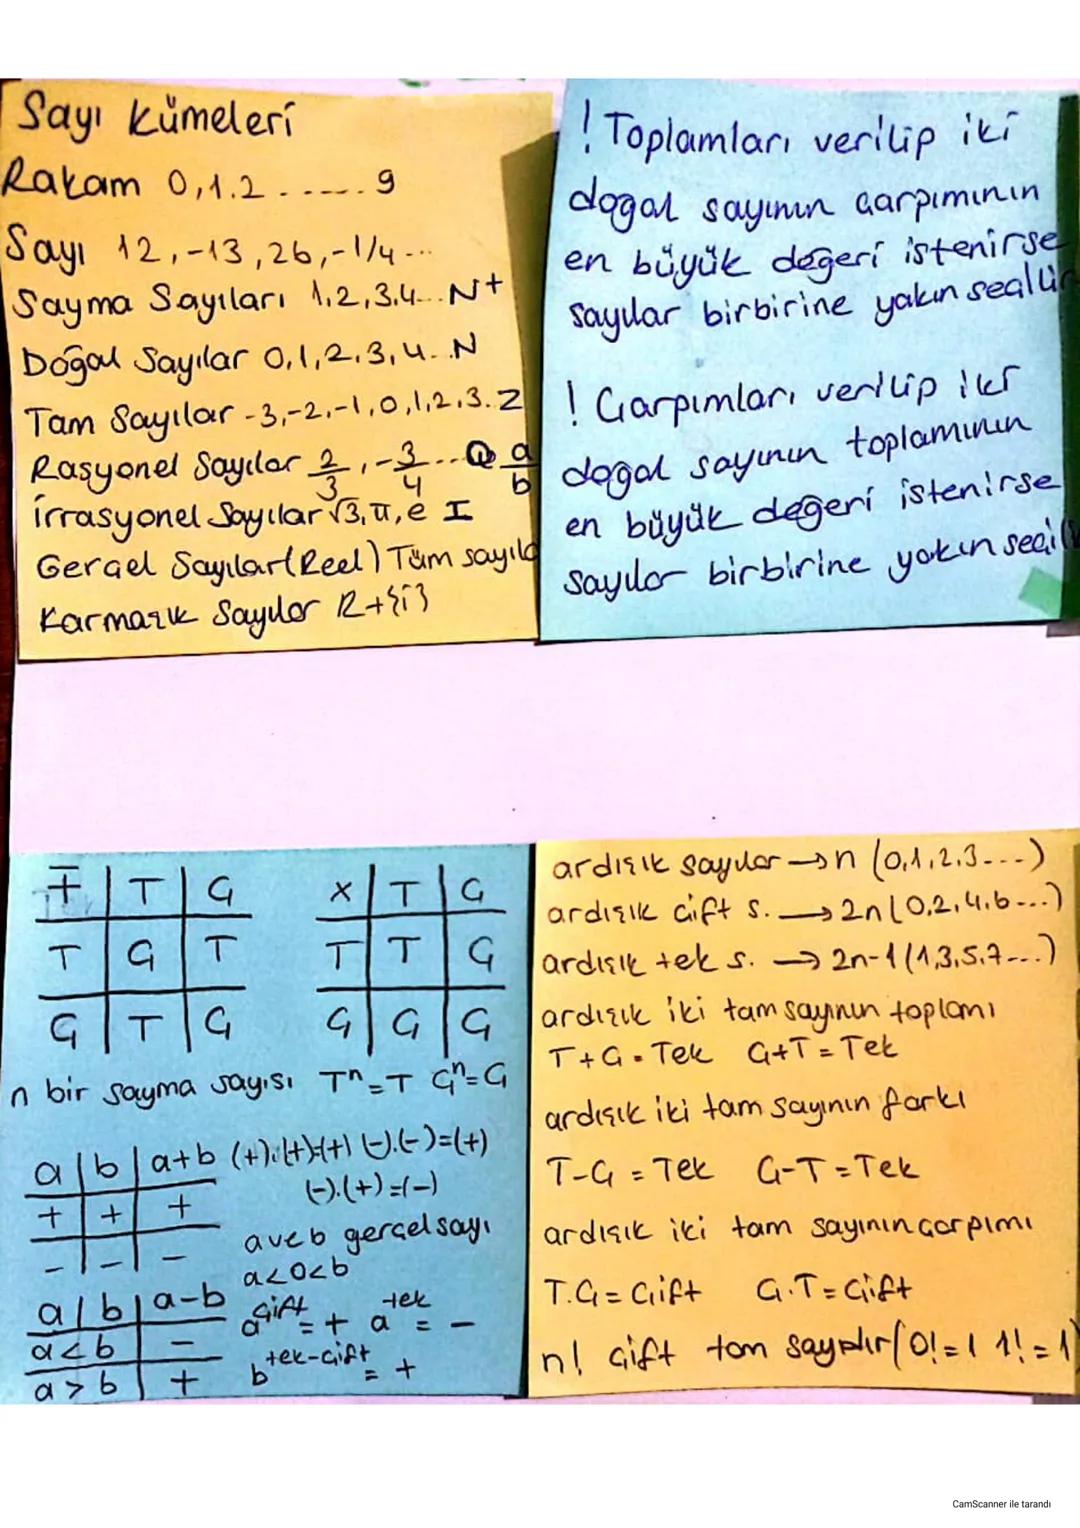 Sayı kümeleri
Rakam 0,1.2 ...... 9
Sayı 12,-13,26,-1/4...
Sayma Sayıları 1,2,3,4... N+
Doğal Sayılar 0,1,2,3,4.. N
Tam Sayılar -3,-2,-1,0,1,2,3. Z
Rasyonel Sayılar 2/3, -3/4 ... Q a/b
İrrasyonel Sayılar √3, π, e I
Gerçel Sayılar (Reel) Tüm sayıla
Karmaşık Sayılar R+{i}
! Toplamları verilip iki
doğal sayının çarpımının
en büyük değeri istenirse
sayılar birbirine yakın seçilir
! Çarpımları verilip iki
doğal sayının toplamının
en büyük değeri istenirse
sayılar birbirine yakın seçili
∓ | T | Ç
T | Ç | T
Ç | T | Ç
x | T | Ç
T | T | Ç
Ç | Ç | Ç
n bir sayma sayısı Tⁿ=T Çⁿ=Ç
a | b | a+b
+ | + | +
- | - | -
(+).(+)=(+) (-).(-)=(+)
(-).(+)=(-)
a | b | a-b
a<b | -
a>b | +
a ve b gerçel sayı
a<0<b
a^çift = + a^tek = -
b^tek-çift = +
ardışık sayılar → n (0,1,2,3...)
ardışık çift s. → 2n (0,2,4,6...)
ardışık tek s. → 2n-1 (1,3,5,7...)
ardışık iki tam sayının toplamı
T+Ç = Tek Ç+T = Tek
ardışık iki tam sayının farkı
T-Ç = Tek Ç-T = Tek
ardışık iki tam sayının çarpımı
T.Ç = Çift Ç.T = Çift
n! çift tam sayıdır (0!=1 1!=1)
CamScanner ile tarandı